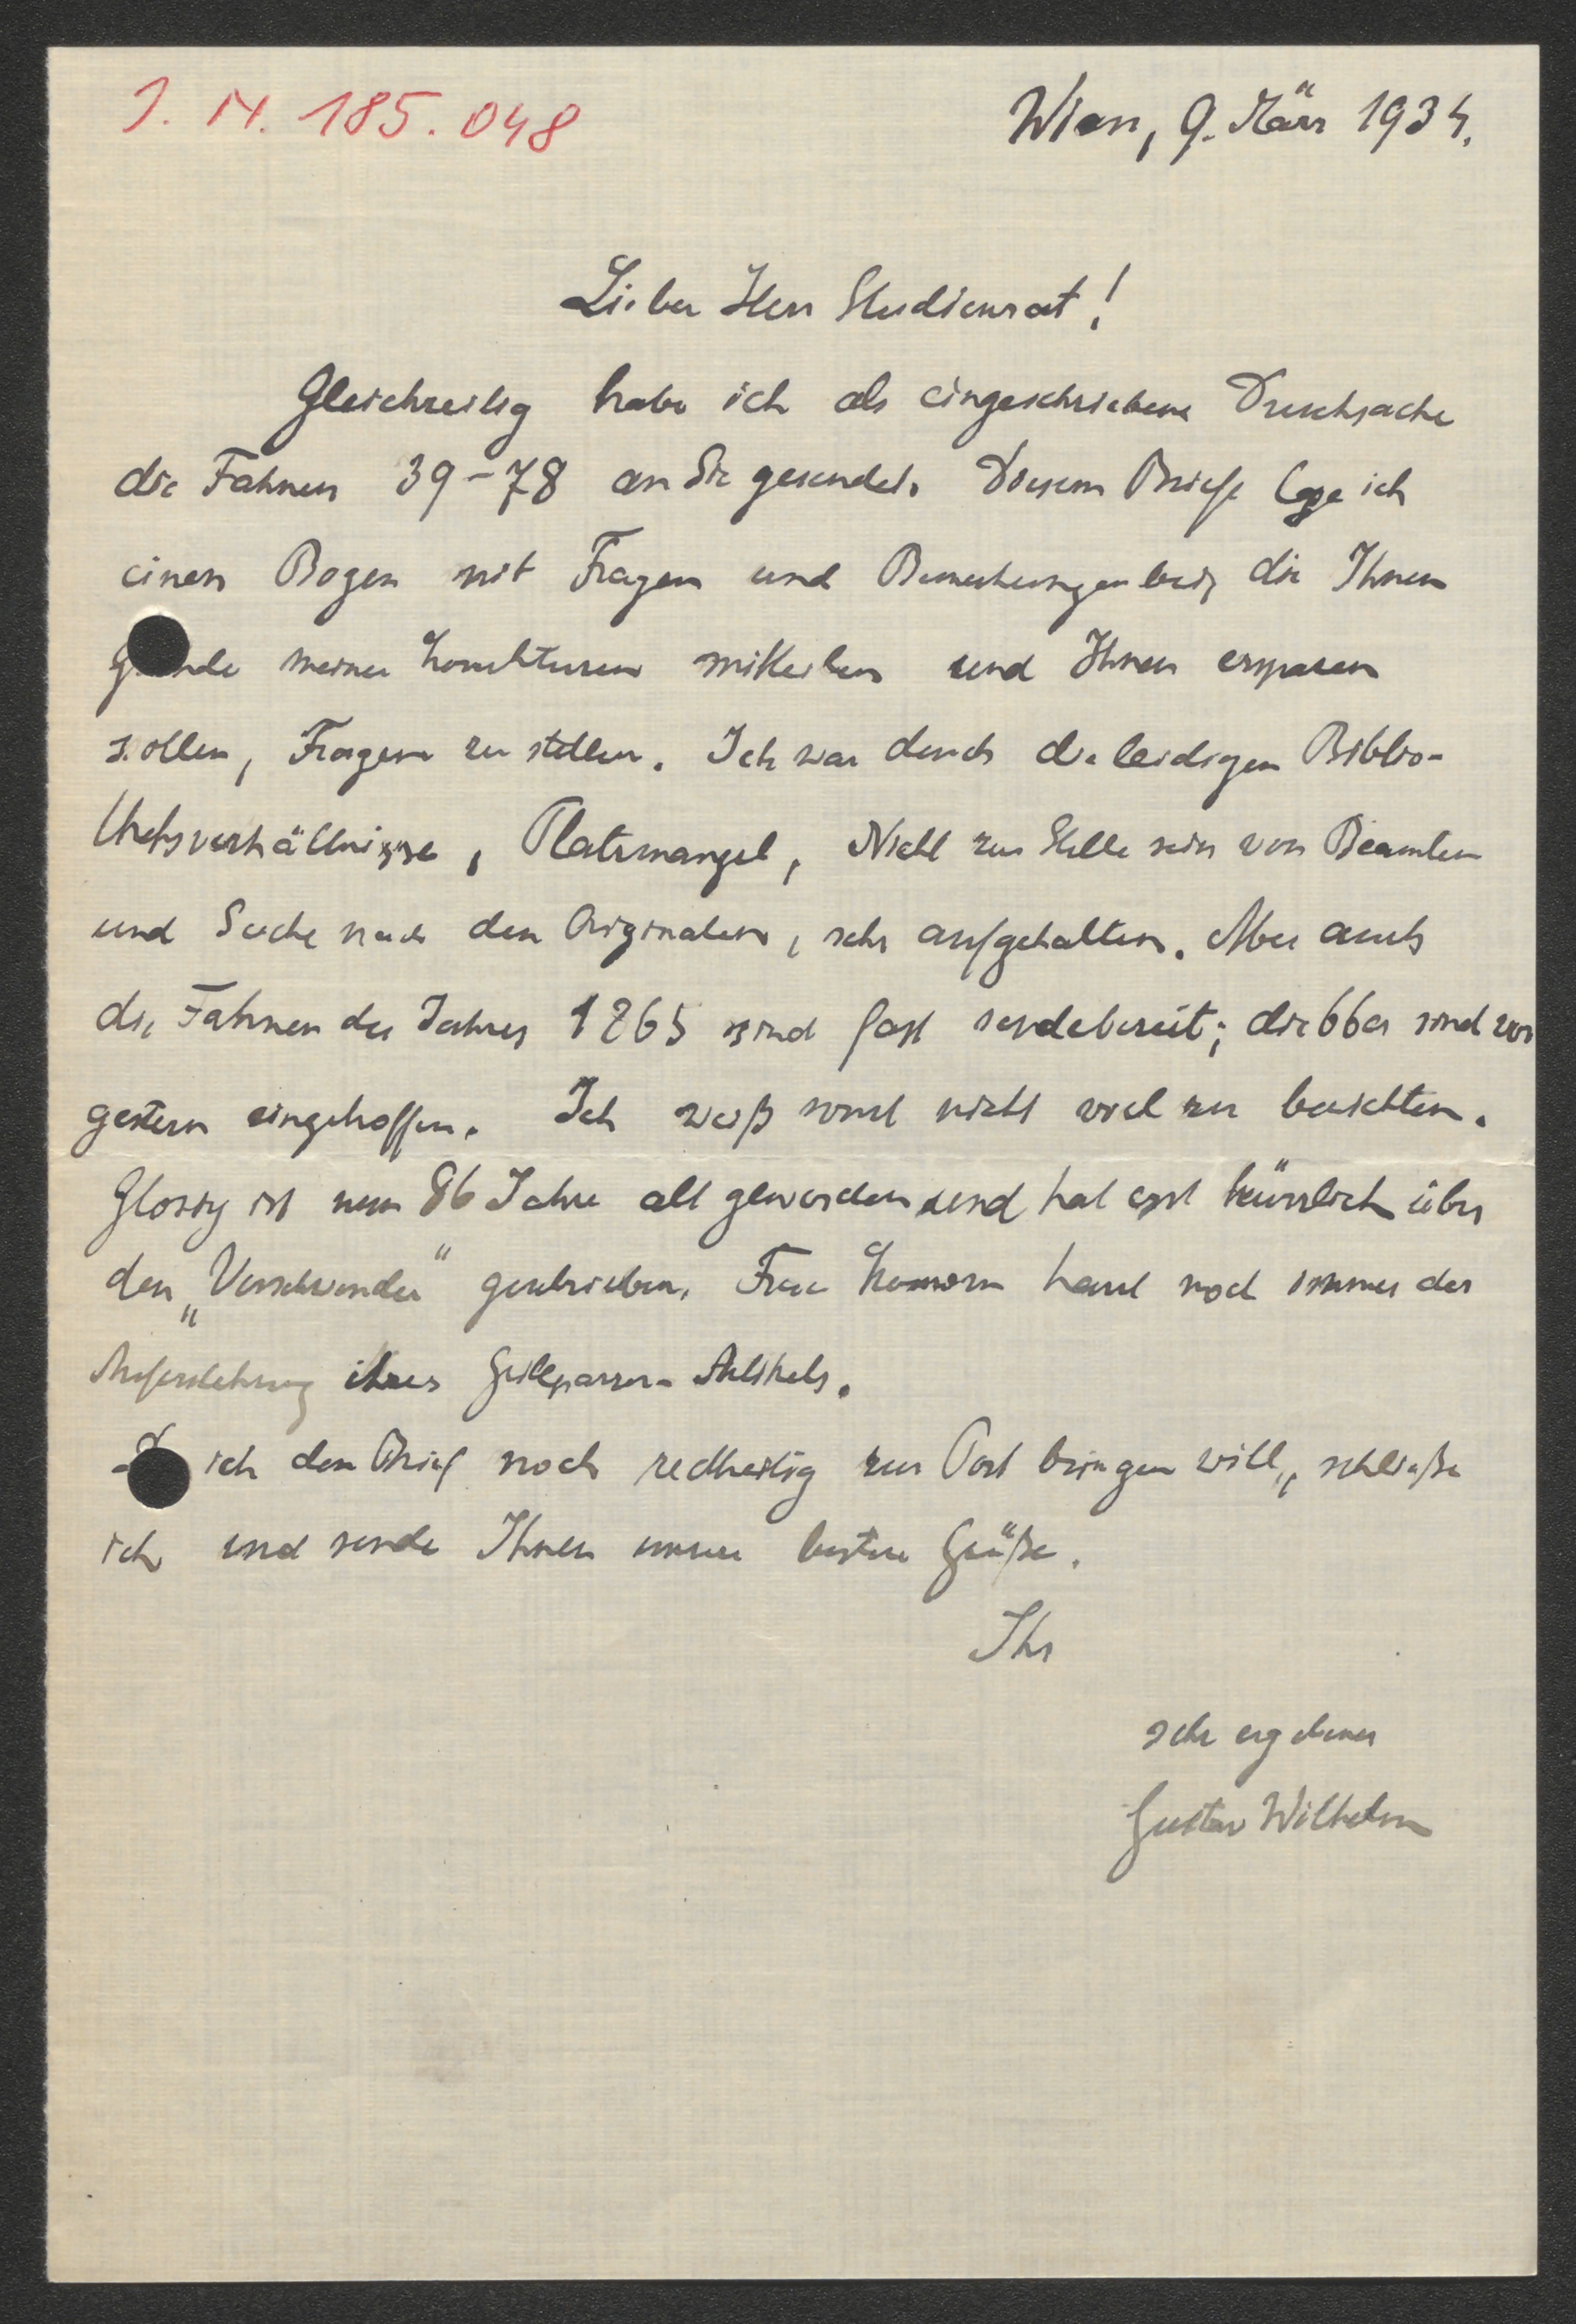 I. N. 185.048
Wien, 9. März 1934.
Lieber Herr Studienrat!
Gleichzeitig habe ich als eingeschriebene Drucksache
die Fahnen 39-78 an Sie gesendet. Diesem Briefe lege ich
einen Bogen mit Fragen und Bemerkungen bei, die Ihnen
G nde meiner Korrekturen mitteilen und Ihnen ersparen
sollen, Fragen zu stellen. Ich war durch die leidigen Biblio-
theksverhältnisse, Platzmangel, Nicht zur Stelle sein von Beamten
und Suche nach den Originalen, sehr aufgehalten. Aber auch
die Fahnen des Jahres 1865 sind fast sendebereit; die 66er sind vor
gestern eingetroffen. Ich weiß sonst nicht viel zu berichten.
Glossy ist nun 86 Jahre alt geworden und hat erst kürzlich über
den „Verschwender" geschrieben. Frau Komorn harrt noch immer der
Auferstehung ihres Grillparzer-Artikels.
D ich den Brief noch rechtzeitig zur Post bringen will, schließe
ich und sende Ihnen unsere besten Grüße.
Ihr
sehr ergebener
Gustav Wilhelm